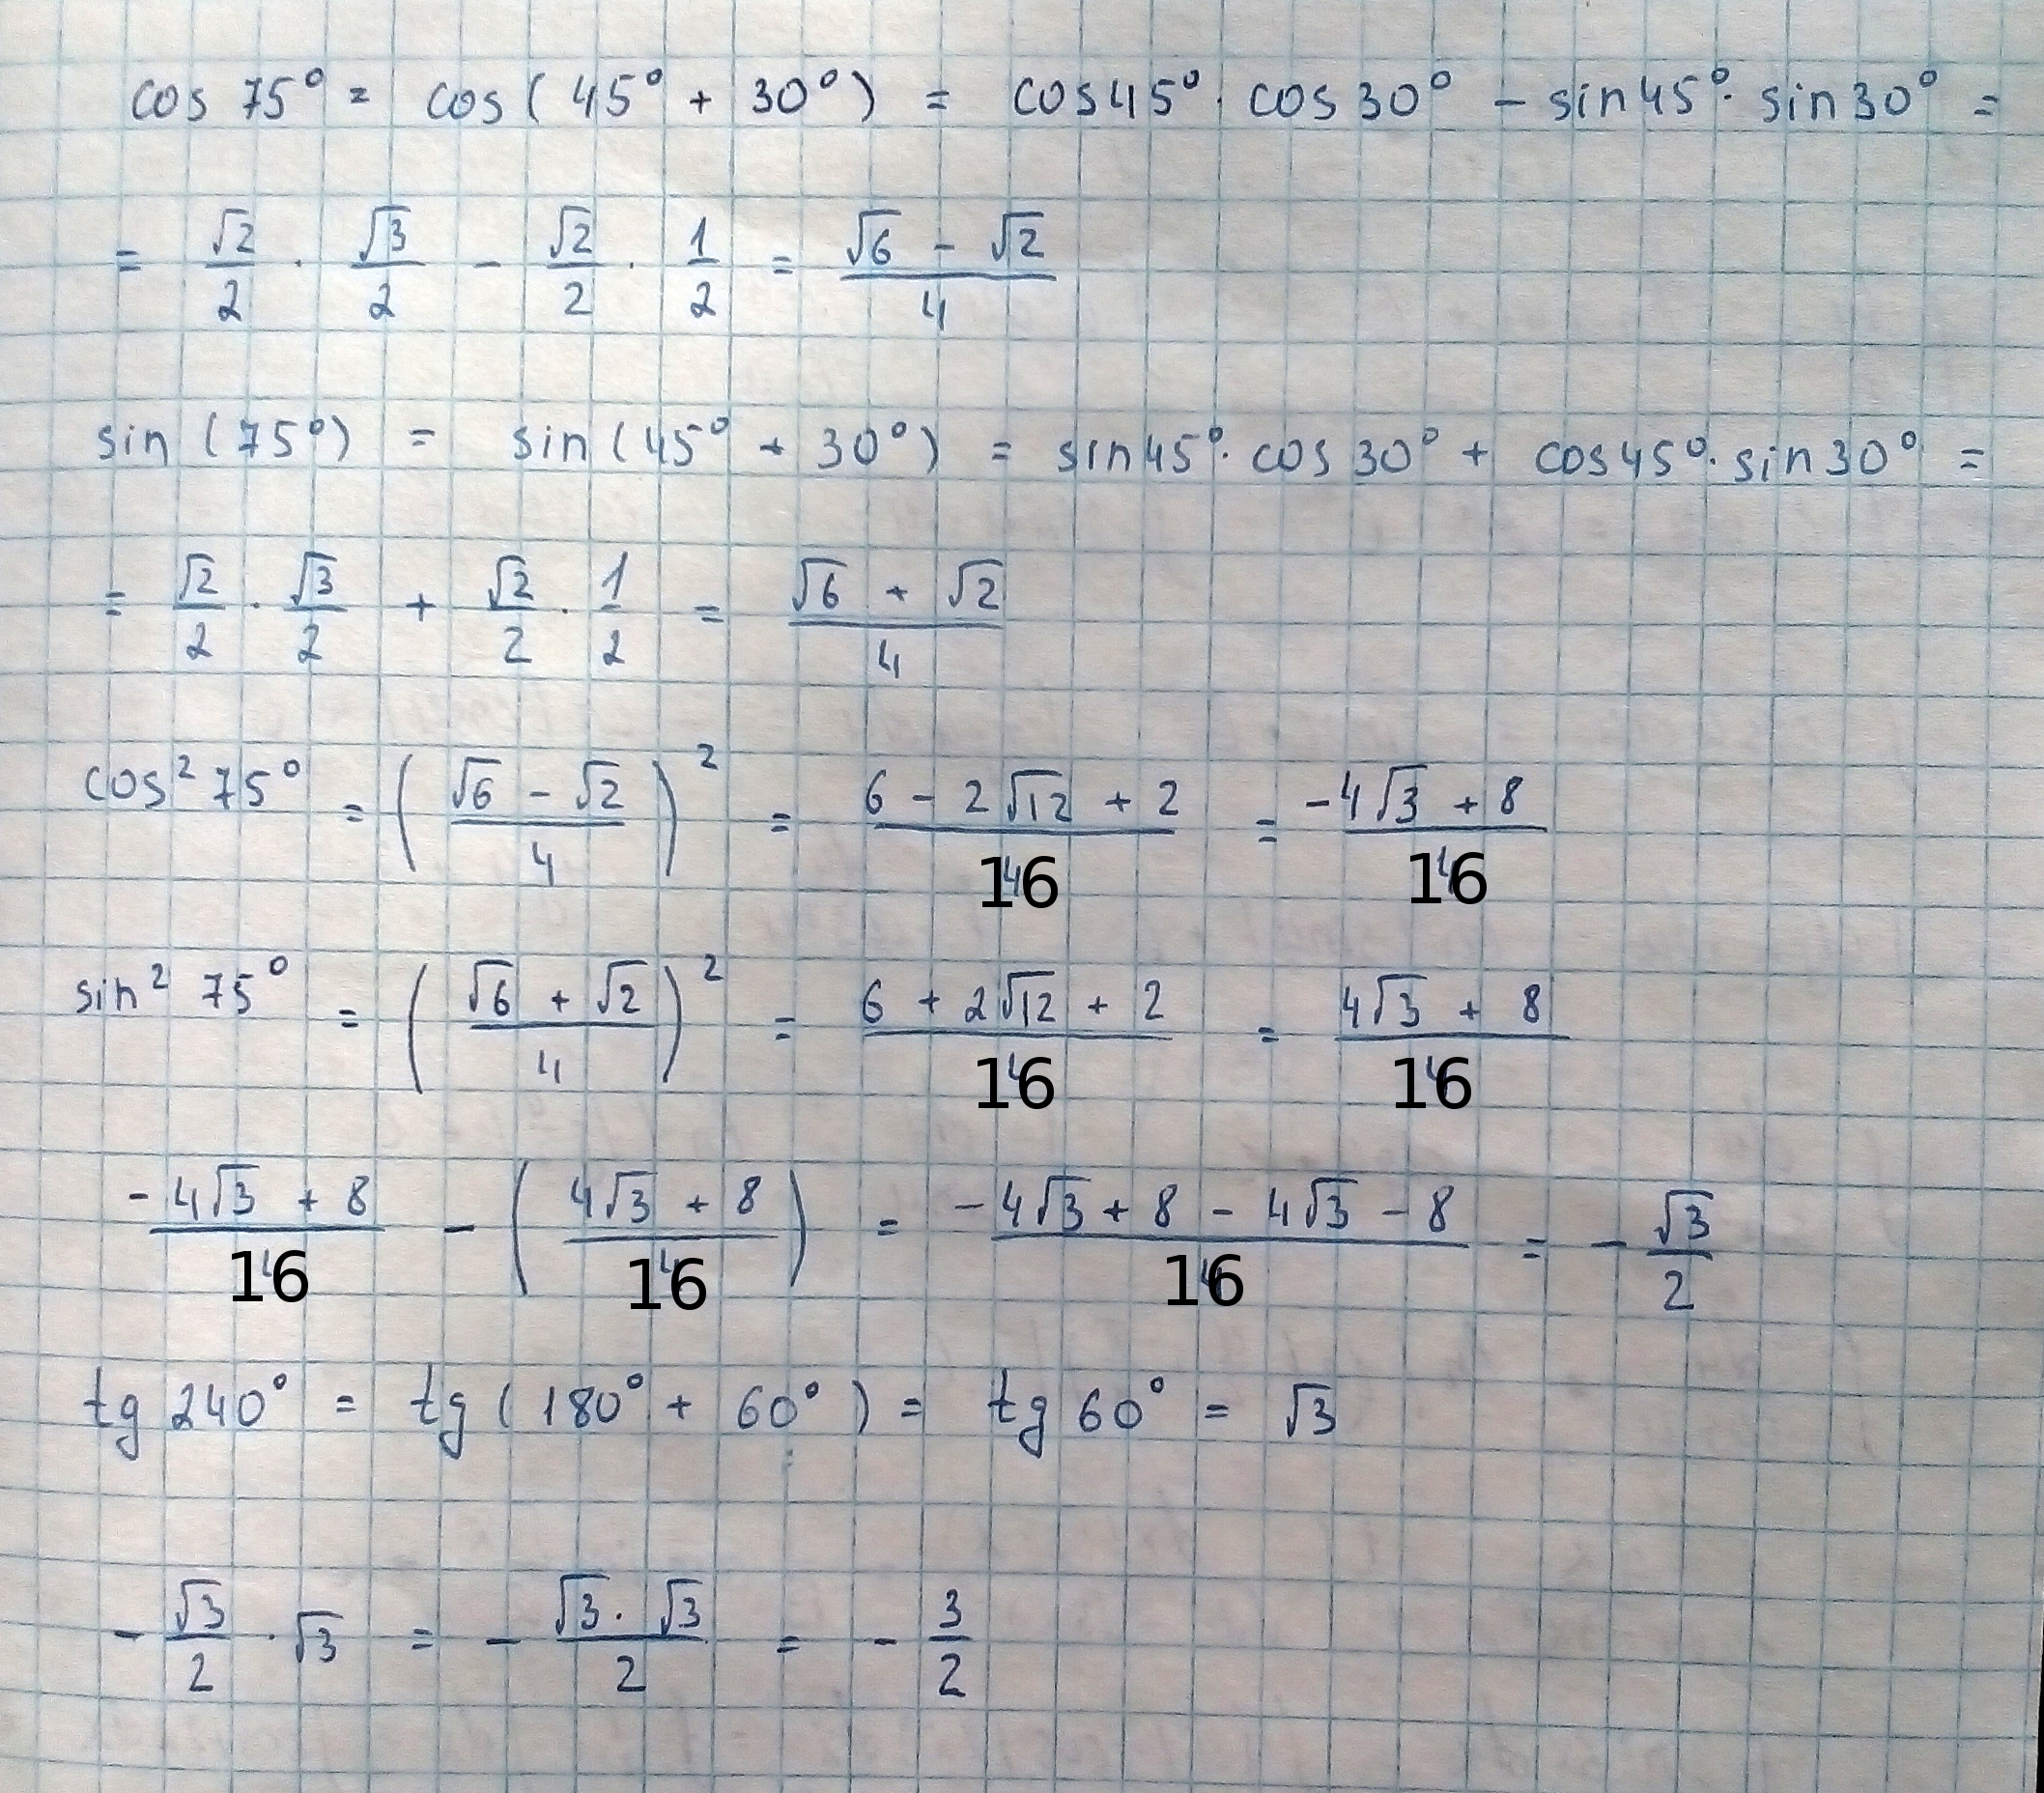 cos 75° = cos(45° + 30°) = cos45° · cos30° - sin45° · sin30° =
= √2/2 · √3/2 - √2/2 · 1/2 = (√6 - √2)/4
sin(75°) = sin(45° + 30°) = sin45° · cos30° + cos45° · sin30° =
= √2/2 · √3/2 + √2/2 · 1/2 = (√6 + √2)/4
cos² 75° = ((√6 - √2)/4)² = (6 - 2√12 + 2)/16 = (-4√3 + 8)/16
sin² 75° = ((√6 + √2)/4)² = (6 + 2√12 + 2)/16 = (4√3 + 8)/16
(-4√3 + 8)/16 - ((4√3 + 8)/16) = (-4√3 + 8 - 4√3 - 8)/16 = -√3/2
tg 240° = tg(180° + 60°) = tg 60° = √3
-√3/2 · √3 = -(√3 · √3)/2 = -3/2